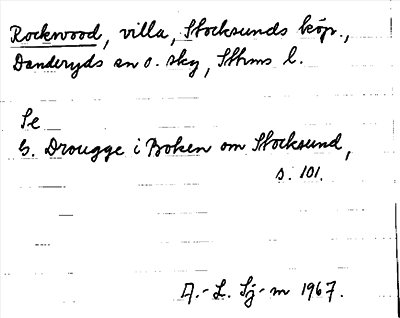 Rockwood, villa, Stocksunds köp.,
Danderyds sn o. skg, Sthms l.
Se
G. Drougge i Boken om Stocksund,
s. 101.
A.-L. Sj-m 1967.